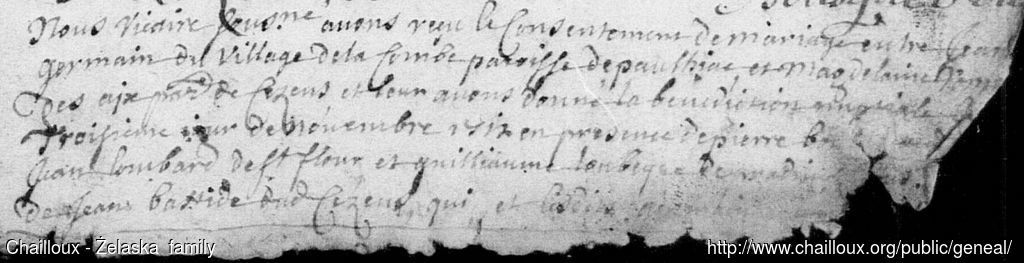 Nous vicaire sousné avons reçu le Consentement de mariage entre Jean
germain du village de la Combe paroisse de paulhiac et magdelaine
des aix paro de Cezens et leur avons donné la benediction nuptiale
troisieme jour de novembre en presence de pierre
Jean lombard de st flour et guilliaume de
de Jean bastide dud Cezens qui et
Chailloux - Želaska family
http://www.chailloux.org/public/geneal/